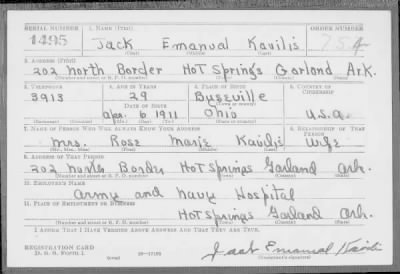 SERIAL NUMBER 1. NAME (Print) ORDER NUMBER
1495 Jack Emanual Kavilis 754
(First) (Middle) (Last)
2. ADDRESS (Print)
202 North Border Hot Springs Garland Ark.
(Number and street or R. F. D. number) (Town) (County) (State)
3. TELEPHONE 4. AGE IN YEARS 5. PLACE OF BIRTH 6. COUNTRY OF CITIZENSHIP
3913 29 Buseville
DATE OF BIRTH
apr. 6 1911 Ohio U.S.a.
(Mo.) (Day) (Yr.) (State or country)
7. NAME OF PERSON WHO WILL ALWAYS KNOW YOUR ADDRESS 8. RELATIONSHIP OF THAT PERSON
mrs. Rose Marie Kavilis wife
(Mr., Mrs., Miss) (First) (Middle) (Last)
9. ADDRESS OF THAT PERSON
202 North Border Hot Springs Garland Ark.
(Number and street or R. F. D. number) (Town) (County) (State)
10. EMPLOYER'S NAME
army and navy Hospital
11. PLACE OF EMPLOYMENT OR BUSINESS
Hot Springs Garland Ark.
(Number and street or R. F. D. number) (Town) (County) (State)
I AFFIRM THAT I HAVE VERIFIED ABOVE ANSWERS AND THAT THEY ARE TRUE.
REGISTRATION CARD
D. S. S. FORM 1 16—17105 Jack Emanual Kavilis
(over) (Registrant's signature)